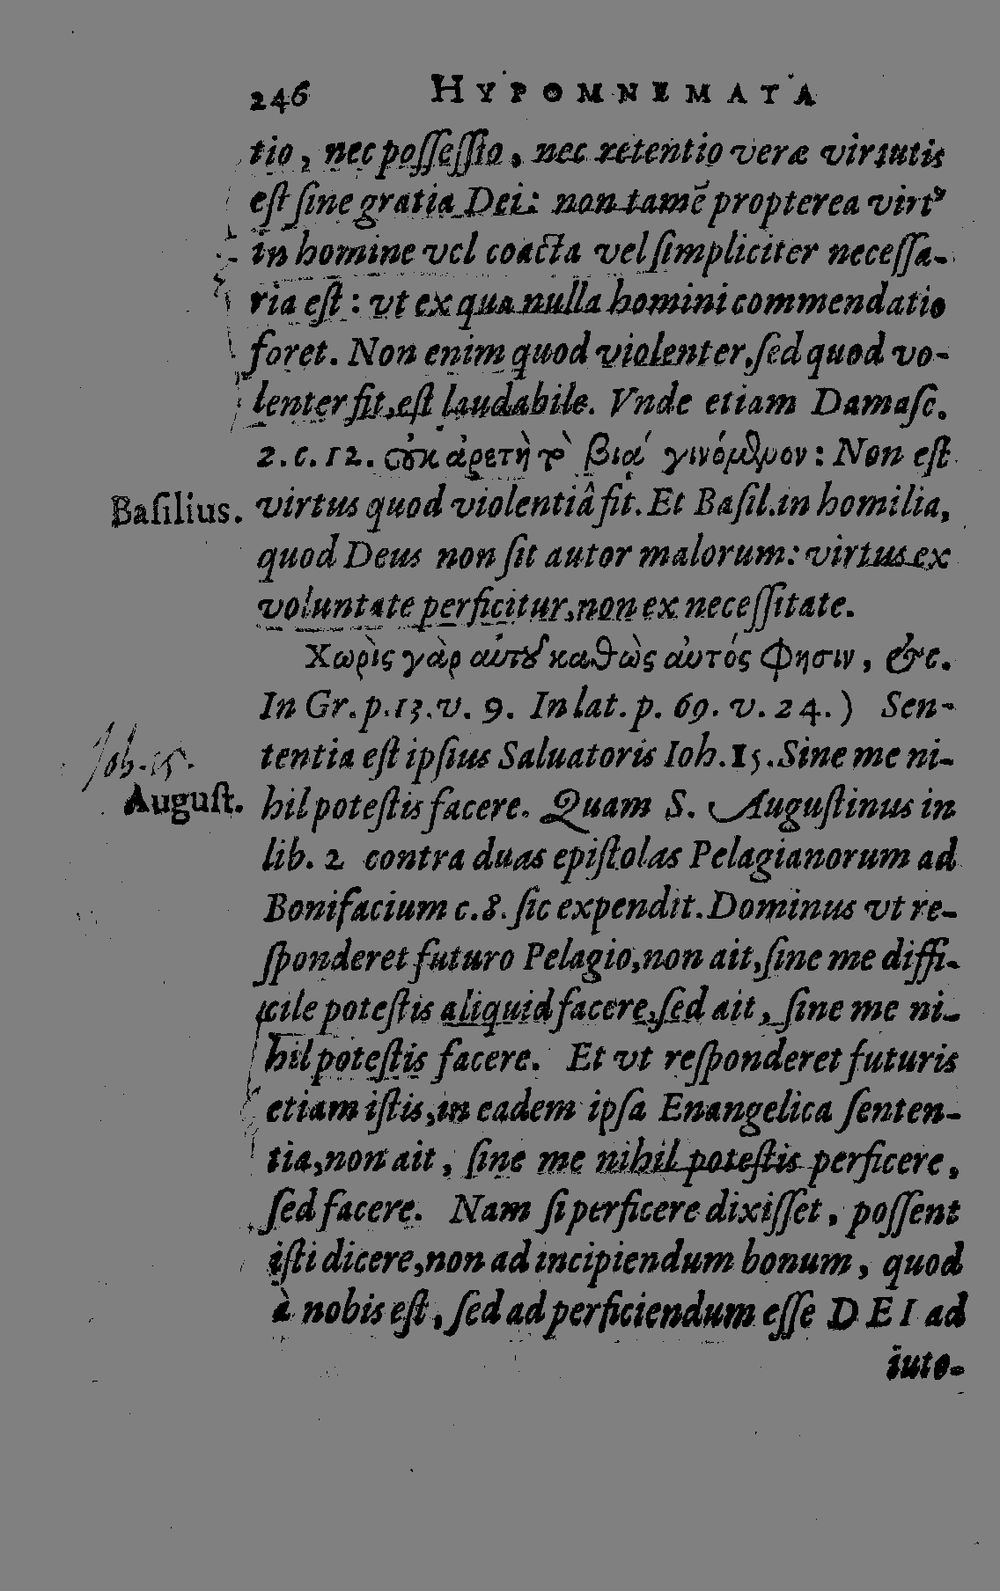 246 HYPOMNEMATA
tio, nec poſſeſſio, nec retentio veræ virtutis
eſt ſine gratia Dei: non tamẽ propterea virtꝰ
in homine vel coacta vel ſimpliciter neceſſa-
ria eſt: vt ex qua nulla homini commendatio
foret. Non enim quod violenter, ſed quod vo-
lenter fit, eſt laudabile. Vnde etiam Damaſc.
2. c. 12. οὐκ ἀρετὴ τὸ βιᾴ γινόμενον: Non eſt
Baſilius. virtus quod violentiâ fit. Et Baſil. in homilia,
quod Deus non ſit autor malorum: virtus ex
voluntate perficitur, non ex neceſſitate.
Χωρὶς γὰρ αὐτοῦ καθὼς αὐτός φησιν, &c.
In Gr. p. 13. v. 9. In lat. p. 69. v. 24.) Sen-
Joh. 15. tentia eſt ipſius Saluatoris Ioh. 15. Sine me ni-
Auguſt. hil poteſtis facere. Quam S. Auguſtinus in
lib. 2 contra duas epiſtolas Pelagianorum ad
Bonifacium c. 8. ſic expendit. Dominus vt re-
ſponderet futuro Pelagio, non ait, ſine me diffi-
cile poteſtis aliquid facere, ſed ait, ſine me ni-
hil poteſtis facere. Et vt reſponderet futuris
etiam iſtis, in eadem ipſa Enangelica ſenten-
tia, non ait, ſine me nihil poteſtis perficere,
ſed facere. Nam ſi perficere dixiſſet, poſſent
iſti dicere, non ad incipiendum bonum, quod
à nobis eſt, ſed ad perficiendum eſſe DEI ad
iuto-